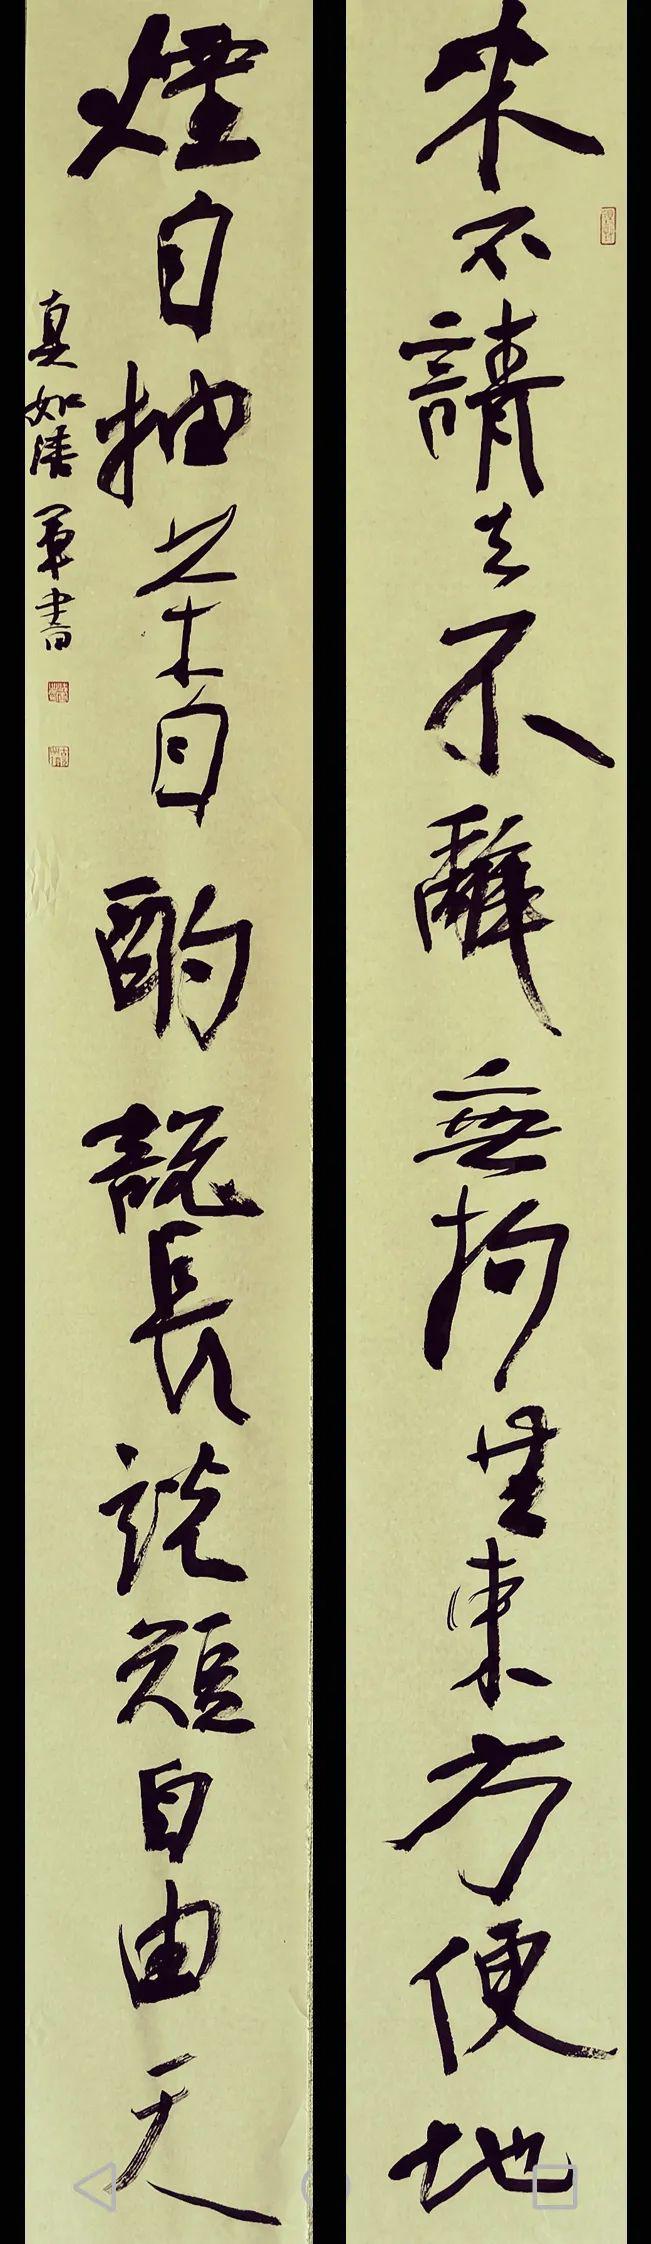 来不請去不辭無拘無束方便地
煙自抽茶自酌說長說短自由天
真如清軍書